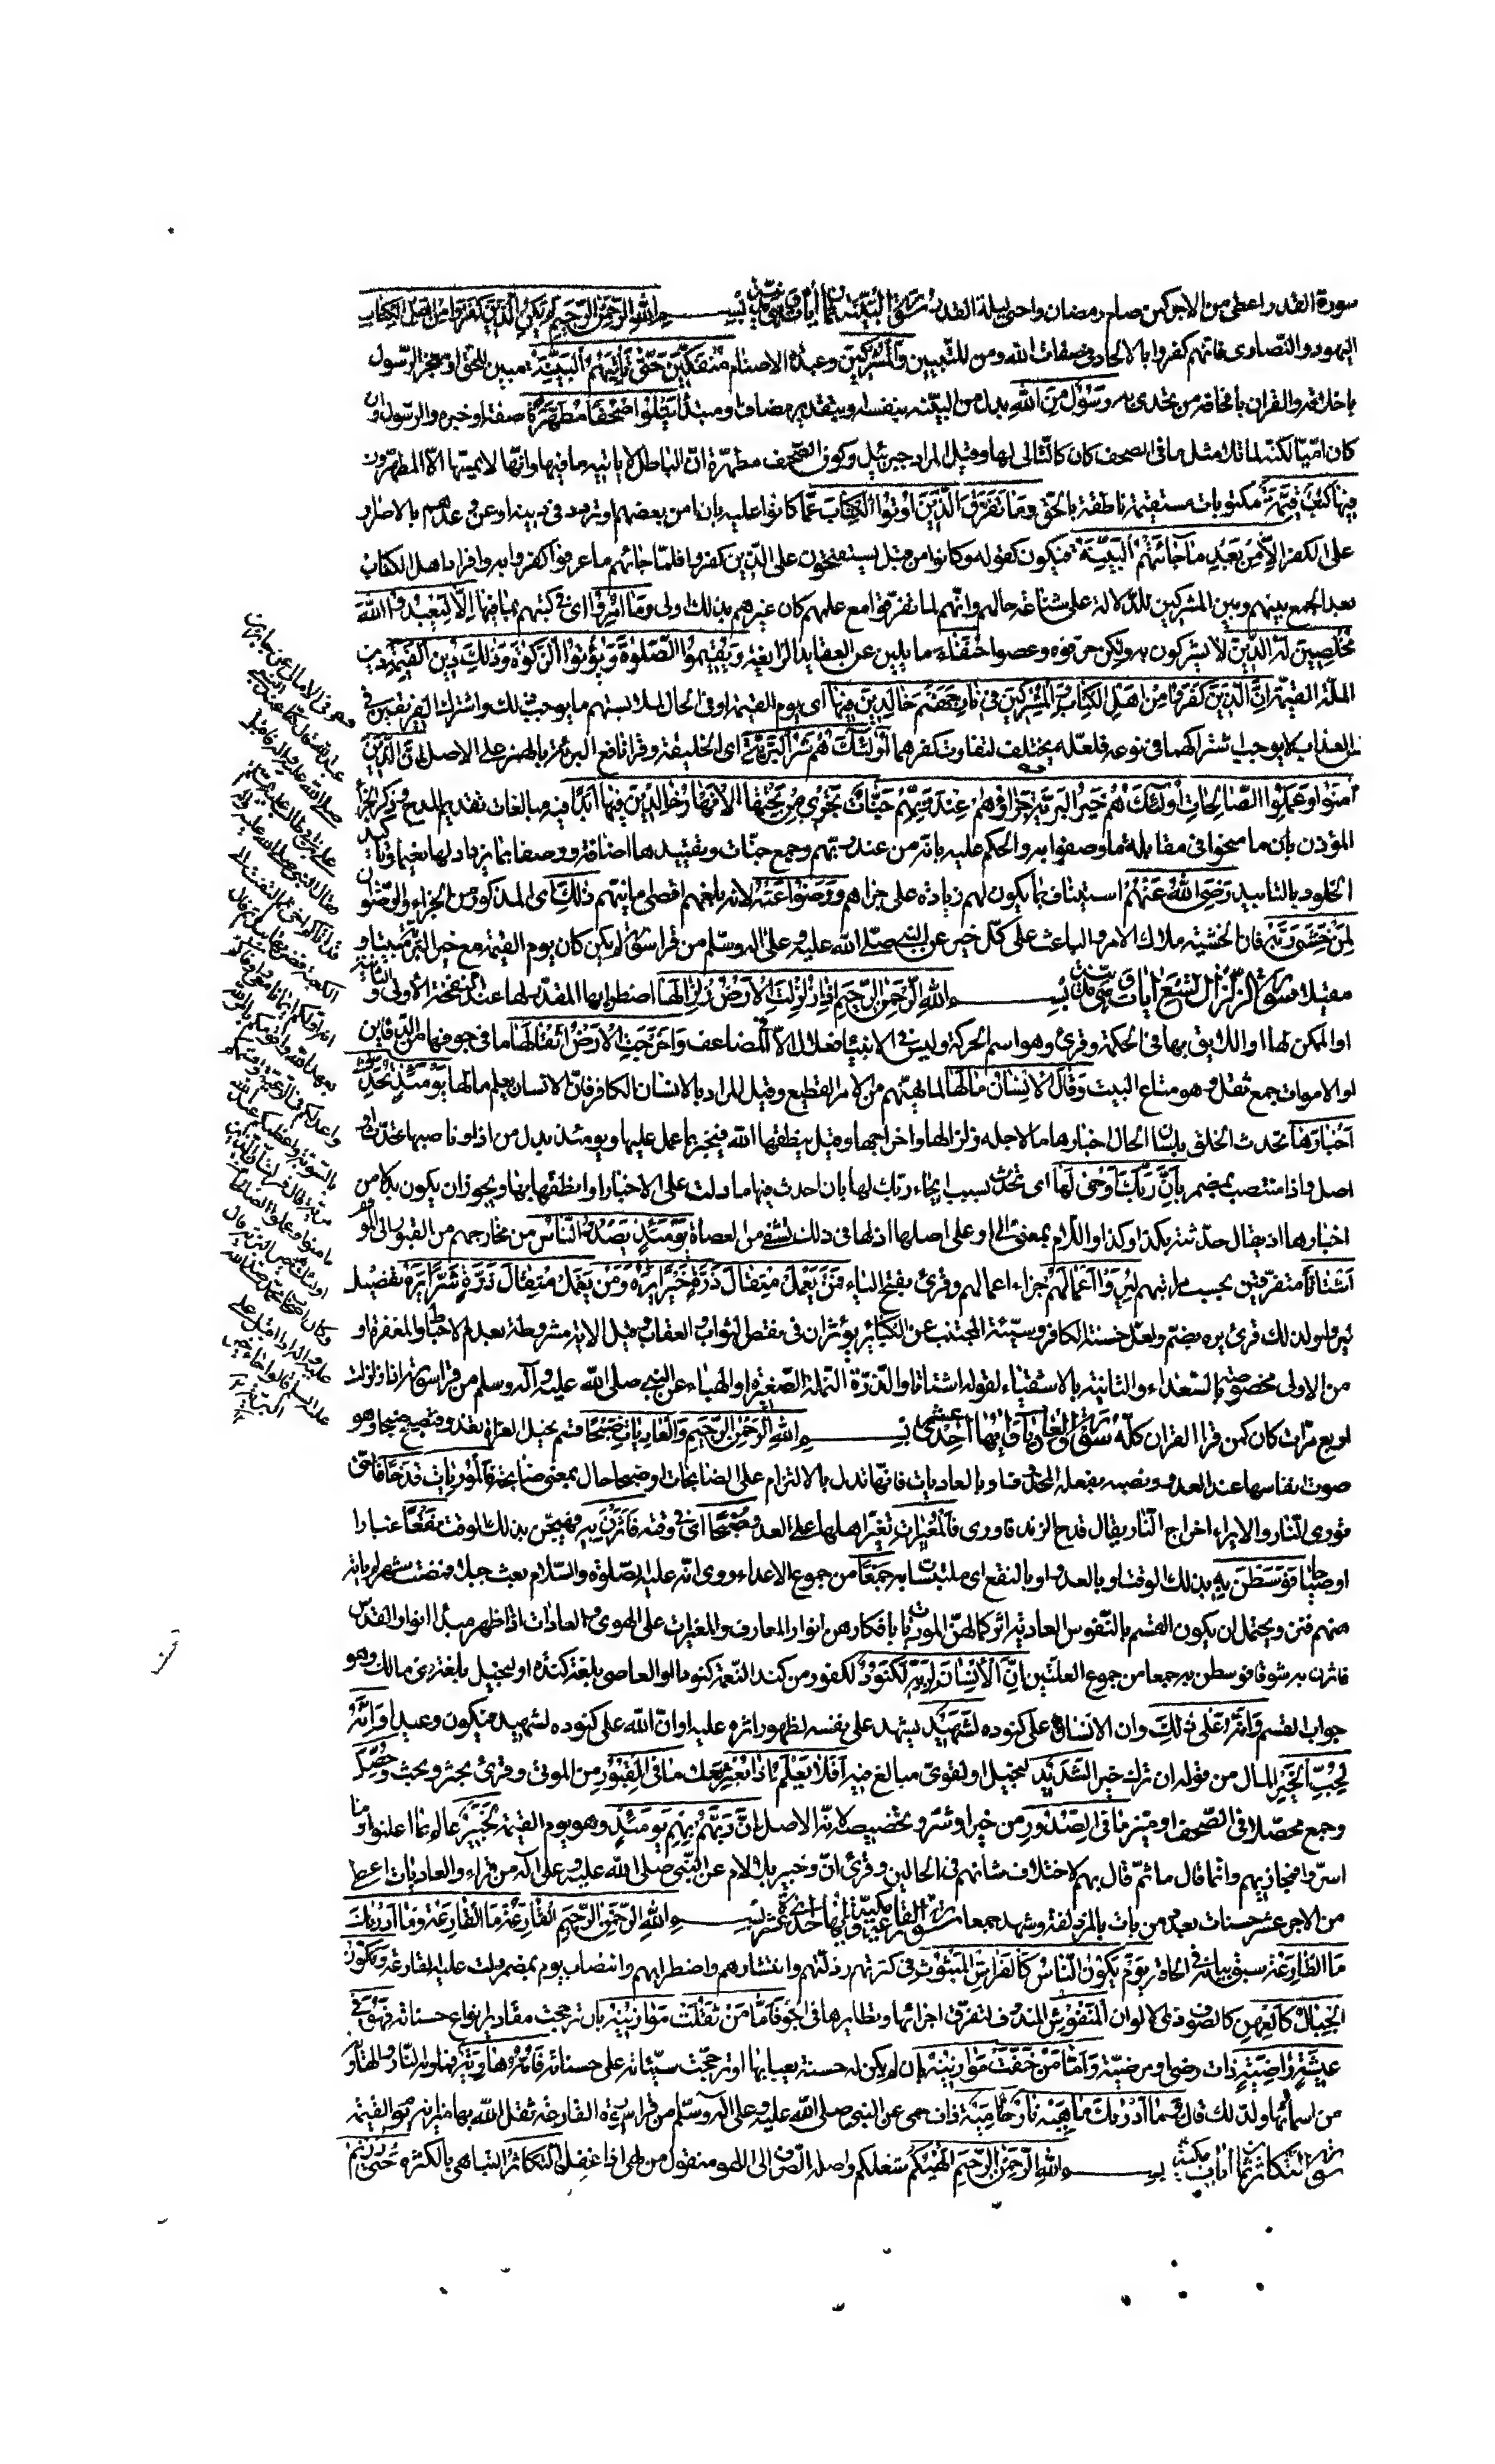 سورة القدر اعطى من الاجر كمن صام رمضان واحيى ليلة القدر سورة البينة ثمان آيات بسم الله الرحمن الرحيم لم يكن الذين كفروا من اهل الكتاب
اليهود والنصارى فانهم كفروا بالالحاد في صفات الله ومن للتبيين والمشركين وعبدة الاصنام منفكين حتى تأتيهم البينة مبين للحق او معجز الرسول
باخلاقه والقران بافحامه من تحدى به رسول من الله بدل من البينة بنفسه او بتقدير مضاف او مبتدأ يتلوا صحفا مطهرة صفته او خبره والرسول وان
كان اميا لكنه لما تلا مثل ما في الصحف كان كالتالى لها وقيل المراد جبرئيل وكون الصحف مطهرة ان الباطل لا يأتيه ما فيها وانها لا يمسها الا المطهرون
فيها كتب قيمة مكتوبات مستقيمة ناطقة بالحق وما تفرق الذين اوتوا الكتاب عما كانوا عليه بان امن بعضهم او تردد في دينه او عن وعدهم بالاصرار
على الكفر الا من بعد ما جائتهم البينة فيكون كقوله وكانوا من قبل يستفتحون على الذين كفروا فلما جائهم ما عرفوا كفروا به وافراد اهل الكتاب
بعد الجمع بينهم وبين المشركين للدلالة على شناعة حالهم وانهم لما تفرقوا مع علمهم كان غيرهم بذلك اولى وما امروا اى في كتبهم بما فيها الا ليعبدوا الله
مخلصين له الدين لا يشركون به ولكن حرفوه وعصوا حنفاء مايلين عن العقايد الزايغة ويقيموا الصلوة ويؤتوا الزكوة وذلك دين القيمة دين
الملة القيمة ان الذين كفروا من اهل الكتاب والمشركين في نار جهنم خالدين فيها اى يوم القيمة او في الحال لملابستهم ما يوجب ذلك واشتراك الفريقين في
العذاب لا يوجب اشتراكهما في نوعه فلعله يختلف لتفاوت كفرهما اولئك هم شر البرية اى الخليقة وقرأ نافع البريئة بالهمز على الاصل ان الذين
آمنوا وعملوا الصالحات اولئك هم خير البرية جزاؤهم عند ربهم جنات تجرى من تحتها الانهار خالدين فيها ابدا فيه مبالغات تقديم المدح وذكر الجزاء
المؤذن بان ما منحوا في مقابلة ما وصفوا به والحكم عليه بانه من عند ربهم وجمع جنات وتقييدها اضافة ووصفا بما يزداد لها نعيما وتأكيد
الخلود بالتابيد رضى الله عنهم استيناف بما يكون لهم زيادة على جزاهم ورضوا عنه لانه بلغهم اقصى امانيهم ذلك اى المذكور من الجزاء والرضوان
لمن خشى ربه فان الخشية ملاك الامر والباعث على كل خير عن النبي صلى الله عليه وعلى آله وسلم من قرا سورة لم يكن كان يوم القيمة مع خير البرية مبيتا و
مقيلا سورة الزلزال تسع آيات بسم الله الرحمن الرحيم اذا زلزلت الارض زلزالها اضطرابها المقدر لها عند النفخة الاولى او الثانية
او الممكن لها او اللايق بها في الحكمة وقرئ وهو اسم الحركة وليس في الابنية فعلال الا في المضاعف واخرجت الارض اثقالها ما في جوفها من الدفاين
او الاموات جمع ثقل وهو متاع البيت وقال الانسان مالها لما يبهرهم من الامر الفظيع وقيل المراد بالانسان الكافر فان الانسان يعلم مالها يومئذ تحدث
اخبارها تحدث الخلق بلسان الحال اخبارها ما لاجله زلزالها واخراجها وقيل ينطقها الله فيخبر بما عمل عليها ويومئذ بدل من اذا وناصبها تحدث او
اصل واذا منتصب بمضمر بان ربك اوحى لها اى تحدث بسبب ايحاء ربك لها بان احدث فيها ما دلت على الاخبار او انطقها بها ويجوز ان يكون بدلا من
اخبارها اذ يقال حدثته بكذا وكذا واللام بمعنى الى او على اصلها اذ لها في ذلك تشفى من العصاة يومئذ يصدر الناس من مخارجهم من القبور الى الموقف
اشتاتا متفرقين بحسب مراتبهم ليروا اعمالهم جزاء اعمالهم وقرئ بفتح الياء فمن يعمل مثقال ذرة خيرا يره ومن يعمل مثقال ذرة شرا يره تفصيل
ليروا ولذلك قرئ يره بضم ولعل حسنة الكافر وسيئة المجتنب عن الكبائر يؤثران في نقص الثواب والعقاب وقيل الاية مشروطة بعدم الاحباط والمغفرة او
من الاولى مخصوصة بالسعداء والثانية بالاشقياء لقوله اشتاتا والذرة النملة الصغيرة او الهباء عن النبي صلى الله عليه وآله وسلم من قرا سورة اذا زلزلت
اربع مرات كان كمن قرا القران كله سورة والعاديات وايها احدى عشر بسم الله الرحمن الرحيم والعاديات ضبحا قسم بخيل الغزاة تعدو فتضبح ضبحا وهو
صوت انفاسها عند العدو ونصبه بفعله المحذوف او بالعاديات فانها تدل بالالتزام على الضابحات او ضبحا حال بمعنى ضابحة فالموريات قدحا فالتى
تورى النار والايراء اخراج النار يقال قدح الزند فاورى فالمغيرات تغير اهلها على العدو صبحا اى في وقته فاثرن به فهيجن بذلك الوقت نقعا غبارا
او صياحا فوسطن به بذلك الوقت او بالعدو او بالنقع اى ملتبسات به جمعا من جموع الاعداء روى انه عليه الصلوة والسلام بعث خيلا فمضت شهر لم ياته
منهم فنزلت ويحتمل ان يكون القسم بالنفوس العادية اثر كمالهن الموريات بافكارهن انوار المعارف والمغيرات على الهوى والعادات اذا ظهر مبدأ انوار القدس
فاثرن به شوقا فوسطن به جمعا من جموع العليين ان الانسان لربه لكنود لكفور من كند النعمة كنودا او العاصى بلغة كندة او لبخيل بلغة بنى مالك وهو
جواب القسم وانه على ذلك وان الانسان على كنوده لشهيد يشهد على نفسه لظهور اثره عليه او ان الله على كنوده لشهيد فيكون وعيدا وانه
لحب الخير المال من قوله ان ترك خيرا لشديد لبخيل او لقوى مبالغ فيه افلا يعلم اذا بعثر بعث ما في القبور من الموتى وقرئ بحثر وبحث وحصل
وجمع محصلا في الصحف او ميز ما في الصدور من خير او شر وتخصيصه لانه الاصل ان ربهم بهم يومئذ وهو يوم القيمة لخبير عالم بما اعلنوا وما
اسروا فمجازيهم وانما قال ما ثم قال بهم لاختلاف شانهم في الحالين وقرئ ان وخبير بلا لام عن النبي صلى الله عليه وعلى آله من قرا والعاديات اعطى
من الاجر عشر حسنات بعدد من بات بالمزدلفة وشهد جمعا سورة القارعة مكية وايها احدى عشر بسم الله الرحمن الرحيم القارعة ما القارعة وما ادريك
ما القارعة سبق بيانه في الحاقة يوم يكون الناس كالفراش المبثوث في كثرتهم وذلتهم وانتشارهم واضطرابهم وانتصاب يوم بمضمر دلت عليه القارعة وتكون
الجبال كالعهن كالصوف ذى الالوان المنفوش المندوف لتفرق اجزائها وتطايرها في الجو فاما من ثقلت موازينه بان ترجحت مقادير انواع حسناته فهو في
عيشة راضية ذات رضى او مرضية واما من خفت موازينه بان لم يكن له حسنة يعبا بها او ترجحت سيئاته على حسناته فامه هاوية فماواه النار والهاوية
من اسمائها ولذلك قال وما ادريك ماهيه نار حامية ذات حمى عن النبي صلى الله عليه وعلى آله وسلم من قرا سورة القارعة ثقل الله بها ميزانه يوم القيمة
سورة التكاثر ثمان آيات مكية بسم الله الرحمن الرحيم الهيكم شغلكم واصله الصرف الى اللهو منقول من لهى اذا غفل التكاثر التباهى بالكثرة حتى زرتم